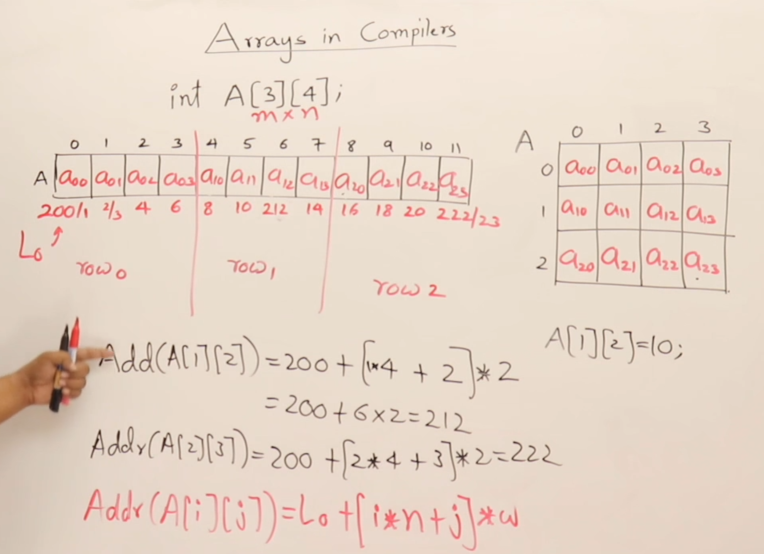 Arrays in Compilers
int A[3][4];
m×n
0 1 2 3 4 5 6 7 8 9 10 11
A a00 a01 a02 a03 a10 a11 a12 a13 a20 a21 a22 a23
200/1 2/3 4 6 8 10 212 14 16 18 20 222/23
L0
row0 row1 row2
A 0 1 2 3
0 a00 a01 a02 a03
1 a10 a11 a12 a13
2 a20 a21 a22 a23
A[1][2]=10;
Add(A[1][2])=200+[1*4+2]*2
=200+6×2=212
Addr(A[2][3])=200+[2*4+3]*2=222
Addr(A[i][j])=L0+[i*n+j]*w